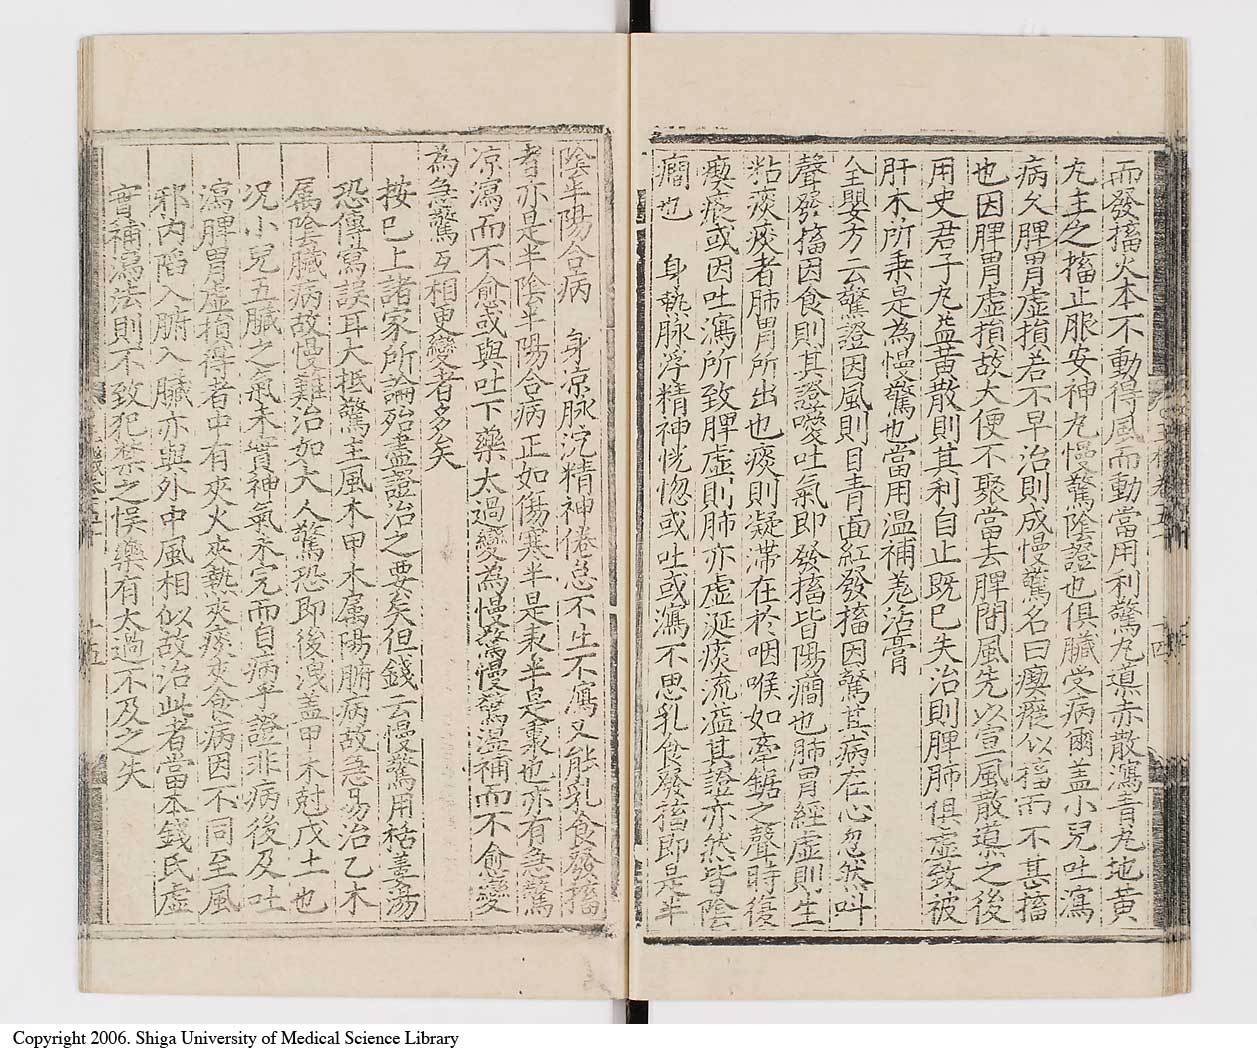 而發搐火本不動得風而動當用利驚丸䆃赤散瀉青丸地黄
丸主之搐止服安神丸慢驚陰證也俱臟受病爾盖小兒吐瀉
病久脾胃虚損若不早治則成慢驚名曰瘈瘲似搐而不甚搐
也因脾胃虚損故大便不聚當去脾間風先以宣風散導之後
用史君子丸益黄散則其利自止既已失治則脾肺俱虚致被
肝木所乗是為慢驚也當用温補羗活膏
全嬰方云驚證因風則目青面紅發搐因驚其病在心忽然叫
聲發搐因食則其證噯吐氣即發搐皆陽癎也肺胃經虚則生
粘痰痰者肺胃所出也痰則凝滞在於咽喉如牽鋸之聲時復
瘈瘲或因吐瀉所致脾虚則肺亦虚涎痰流溢其證亦然皆陰
癎也　身熱脉浮精神恍惚或吐或瀉不思乳食發搐即是半
陰半陽合病　身凉脉沉精神倦怠不生不瀉又能乳食發搐
者亦是半陰半陽合病正如傷寒半是表半是裏也亦有急驚
凉瀉而不愈或與吐下藥太過變為慢驚慢驚温補而不愈變
為急驚互相更變者多矣
按已上諸家所論殆盡證治之要矣但錢云慢驚用栝蔞湯
恐傳寫誤耳大抵驚主風木甲木属陽腑病故急易治乙木
属陰臟病故慢難治如大人驚恐即後洩盖甲木尅戊土也
况小兒五臟之氣未實神氣未完而自病乎證非病後及吐
瀉脾胃虚損得者中有夾火夾熱夾痰夾食病因不同至風
邪内陷入腑入臟亦與外中風相似故治此者當本錢氏虚
實補瀉法則不致犯禁之悮藥有太過不及之失
十四
十五
Copyright 2006. Shiga University of Medical Science Library